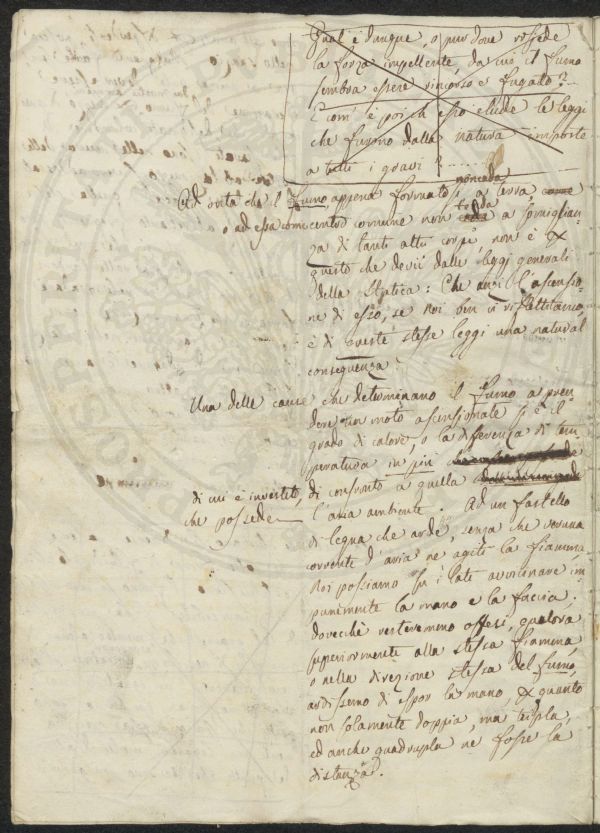 Qual è dunque, o pur dove risiede
la forza impellente, da cui il fumo
sembra essere rincorso e fugato? ...
E com' è poi ch' esso elude le leggi
che furono dalla natura imposte
a tutti i gravi? ........
Ad onta che il fumo, appena formatosi, a terra, come
noncada
o ad essa come centro comune non tenda a somiglian-
za di tanti altri corpi, non è per
questo che devii dalle leggi generali
della statica: Che anzi l'ascensio-
ne di esso, se noi ben vi riflettiamo,
è di queste stesse leggi una natural
conseguenza.
Una delle cause che determinano il fumo a pren-
dere un moto ascensionale si è il
grado di calore, o la diferenza di tem-
peratura in più
di cui è investito, di confronto a quella
che possede l'aria ambiente. Ad un fastello
di legna che arde, senza che veruna
corrente d'aria ne agiti la fiamma,
Noi possiamo su i lati avvicinare im-
punemente la mano e la faccia;
dovecchè resteremmo offesi, qualora
superiormente alla stessa fiamma,
o nella direzione stessa del fumo,
ardissemo di espor la mano per quanto
non solamente doppia, ma tripla,
ed anche quadrupla ne fosse la
distanza.